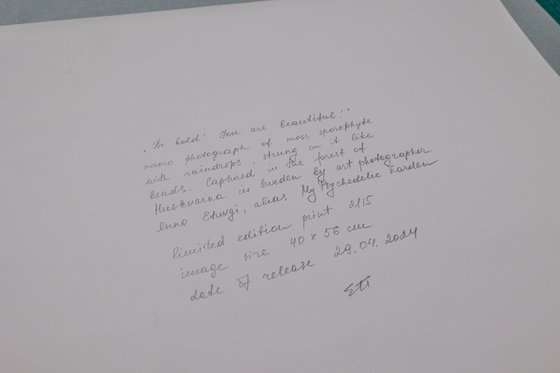 "Be bold! You are beautiful!"
macro photograph of moss sporophyte
with raindrops, strung on it like
beads. Captured in the forest of
Huskvarna in Sweden by art photographer
Inna Etuvgi, alias My Psychedelic Garden
limited edition print 2/15
image size 40 x 56 cm
date of release 29.04.2024